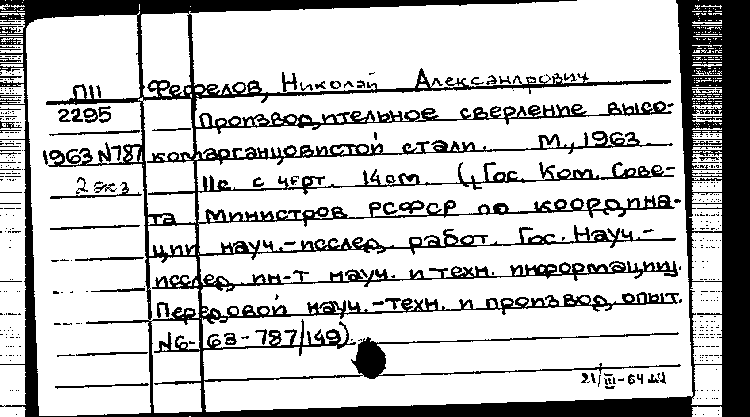 П11 Фефелов, Николай Александрович
2295 Производительное сверление высо-
1963 N787 комарганцовистой стали. М., 1963.
2 экз 11с. с черт. 14см. (Гос. Ком. Сове-
та Министров РСФСР по координа-
ции науч.-исслед. работ. Гос. Науч.-
исслед. ин-т науч. и техн. информации.
Передовой науч.-техн. и производ. опыт.
N6-63-787/149)
21/III-64